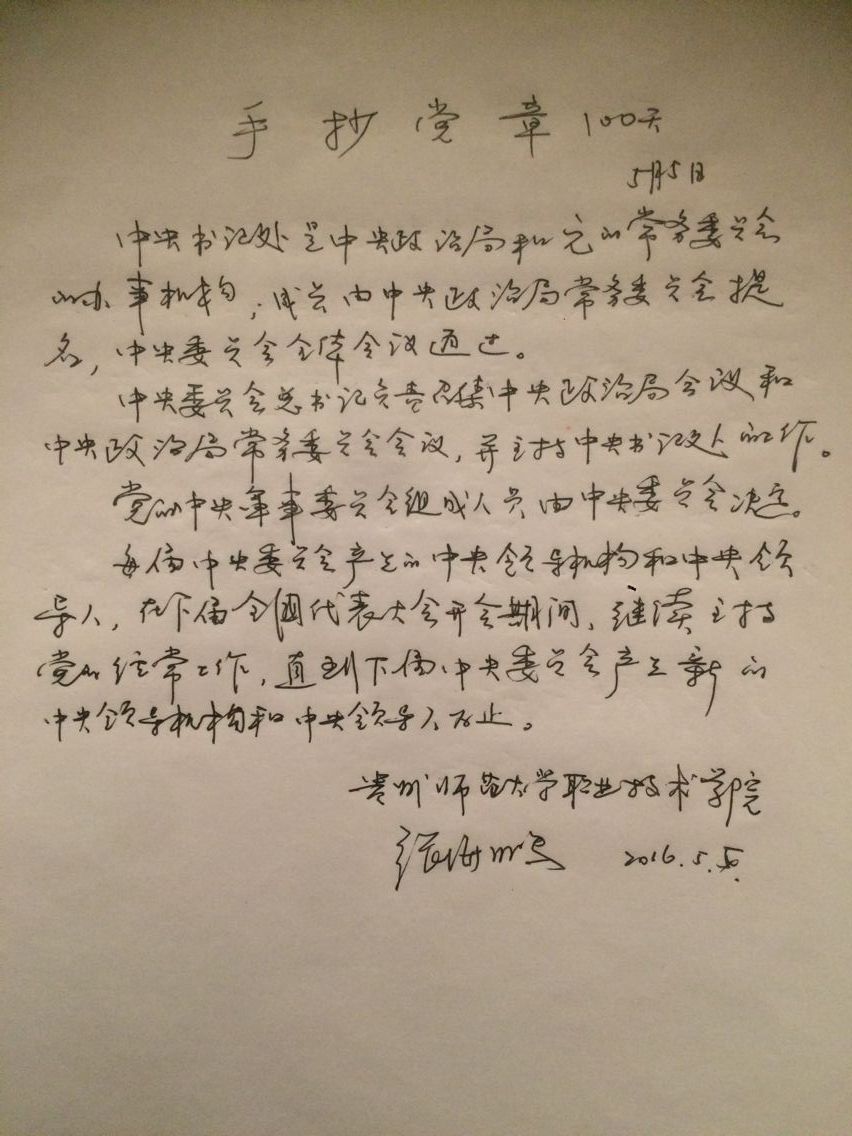 手抄党章100天
5月5日
中央书记处是中央政治局和它的常务委员会
的办事机构；成员由中央政治局常务委员会提
名，中央委员会全体会议通过。
中央委员会总书记负责召集中央政治局会议和
中央政治局常务委员会会议，并主持中央书记处的工作。
党的中央军事委员会组成人员由中央委员会决定。
每届中央委员会产生的中央领导机构和中央领
导人，在下届全国代表大会开会期间，继续主持
党的经常工作，直到下届中央委员会产生新的
中央领导机构和中央领导人为止。
贵州师范大学职业技术学院
2016.5.5.